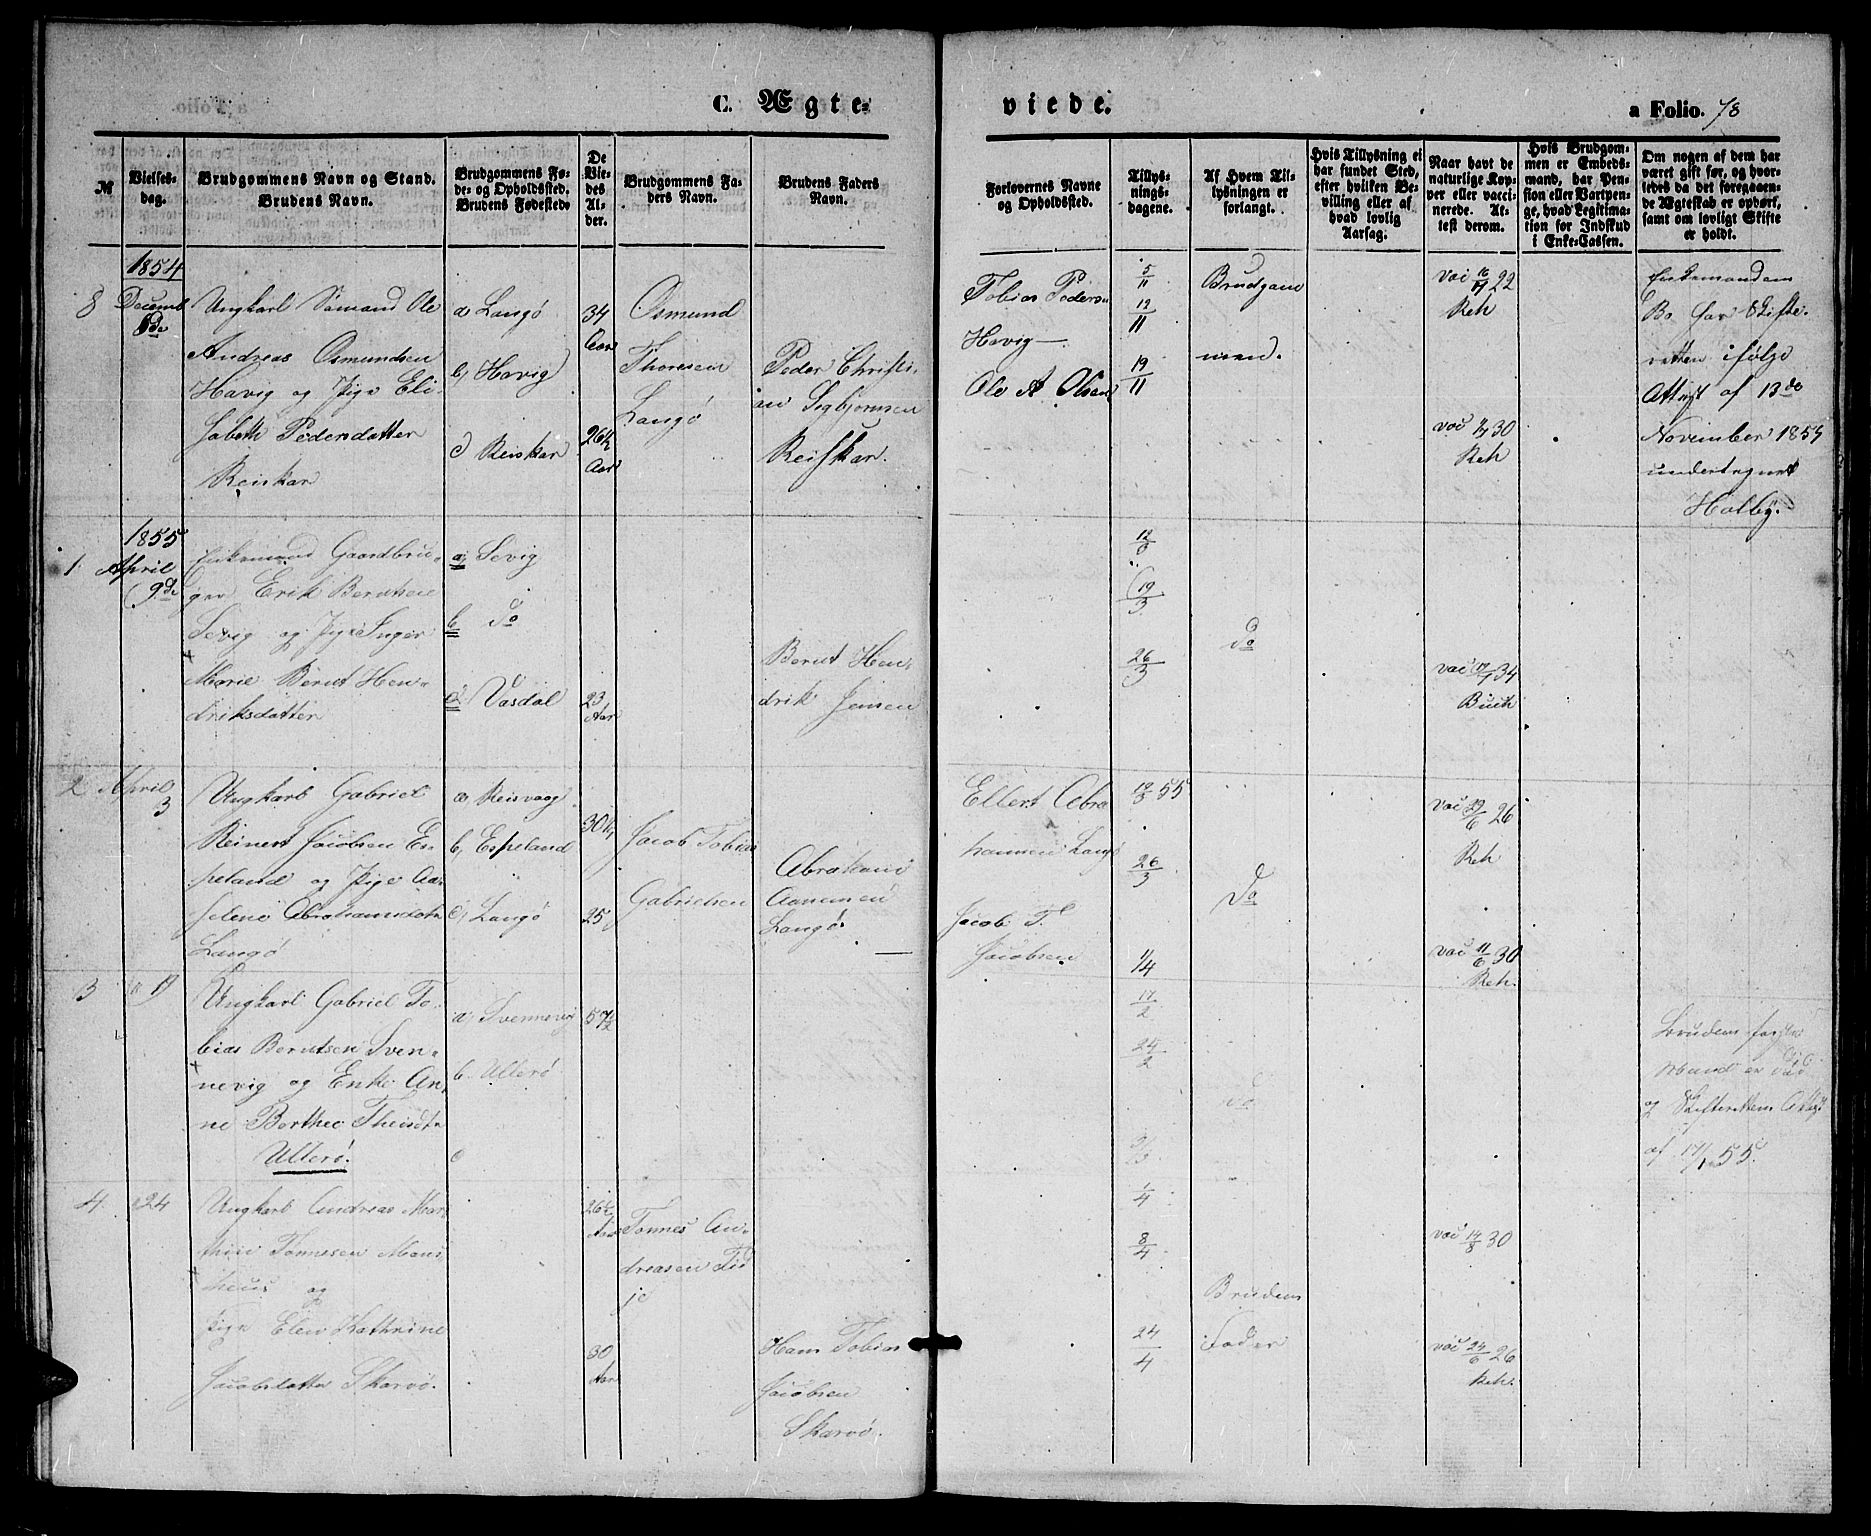 C. Ægte-
viede.
a Folio. 78
№
Vielses-
dag.
Brudgommens Navn og Stand.
Brudens Navn.
Brudgommens Fø-
de- og Opholdsted.
Brudens Fødested.
De
Vie-
des
Al-
der.
Brudgommens Fa-
ders Navn.
Brudens Faders
Navn.
Forlovernes Navne
og Opholdsted.
Tillys-
nings-
dagene.
Af Hvem Til-
lysningen er
forlangt.
Hvis Tillysning ei
har fundet Sted,
efter hvilken Be-
villing eller af
hvad lovlig
Aarsag.
Naar havt de
naturlige Kop-
per eller vacci-
nerede. At-
test derom.
Hvis Brudgom-
men er Embeds-
mand, har Pen-
sion eller Vartpen-
ge, hvad Legitima-
tion for Indskud
i Enke-Cassen.
Om nogen af dem har
været gift før, og hvor-
ledes da det foregaaen-
de Ægteskab er ophørt,
samt om lovligt Skifte
er holdt.
1854
8
Decemb
Ungkarl Sømand Ole
Andreas Osmundsen
Havig og Pige Eli-
sabeth Pedersdatter
Reiskar
a) Langø
b) Havig
c) Reiskar
34
Aar
26½
Aar
Osmund
Thoresen
Langø
Peder Christi-
an Sigbjørnsen
Reiskar.
Tobias Peders
Havig
Ole A Olsen
5/11
12/11
19/11
Brudgom
men.
vac 22
Reh
vac 30
Reh
Enkemandens
Bo har Skifte-
retten ifølge
Attest af 13de
November 1854
undertegnet
Holby.
1855
1
April
9de
Enkemand Gaardbru-
ger Erik Berntsen
Sevig og Pige Inger
Marie Bernt Hen-
driksdatter
a) Sevig
b do
c Vasdal
23
Aar
Bernt Hen-
drik Jensen
12/3
19/3
26/3
do
vac 34
Buch
2
April
3
Ungkarl Gabriel
Reinert Jacobsen Es-
peland og Pige Aa-
selene Abrahamsdtr
Langø
a Reisvaag
b, Espeland
c, Langø
30½
25
Jacob Tobias
Gabrielsen
Abraham
Aanensen
Langø
Ellert Abra
hamsen Langø
Jacob T.
Jacobsen
55
26/3
1/4
Do
vac 29/6 26
Reh
vac 11/6 30
Reh.
3
19
Ungkarl Gabriel To-
bias Berntsen Sven-
nevig og Enke An-
ne Berthe Theisdtr
Ullerø.
a, Svennevig
b. Ullerø
c
57½
17/2
24/2
do
Brudens første
Mand er død
og Skifterettens Attest
af 55.
4
24
Ungkarl Andreas Mar-
thin Tønnesen
og
Pige Elen Kathrine
Jacobsdatter Skarvø.
26½
Aar
30
Aar
Tønnes An-
dreasen
Hans Tobias
Jacobsen
Skarvø.
1/4
8/4
24/4
Brudens
Fader
vac 14/8 30
vac 24/6 26
Reh.